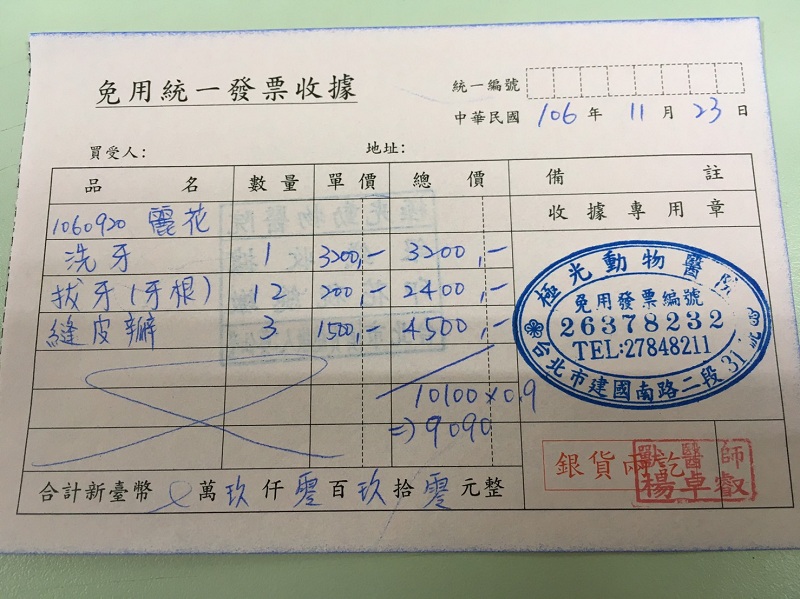 免用統一發票收據
統一編號
中華民國 106 年 11 月 23 日
買受人: 地址:
品 名 數量 單價 總 價 備 註
1060920 麗花 收據專用章
洗牙 1 3200,- 3200,-
拔牙(牙根) 12 200,- 2400,-
縫皮瓣 3 1500,- 4500,-
10100×0.9
=>9090
合計新臺幣 萬 玖 仟 零 百 玖 拾 零 元整
極光動物醫院
免用發票編號
26378232
TEL:27848211
台北市建國南路二段31號
銀貨兩訖
獸醫師
楊卓叡